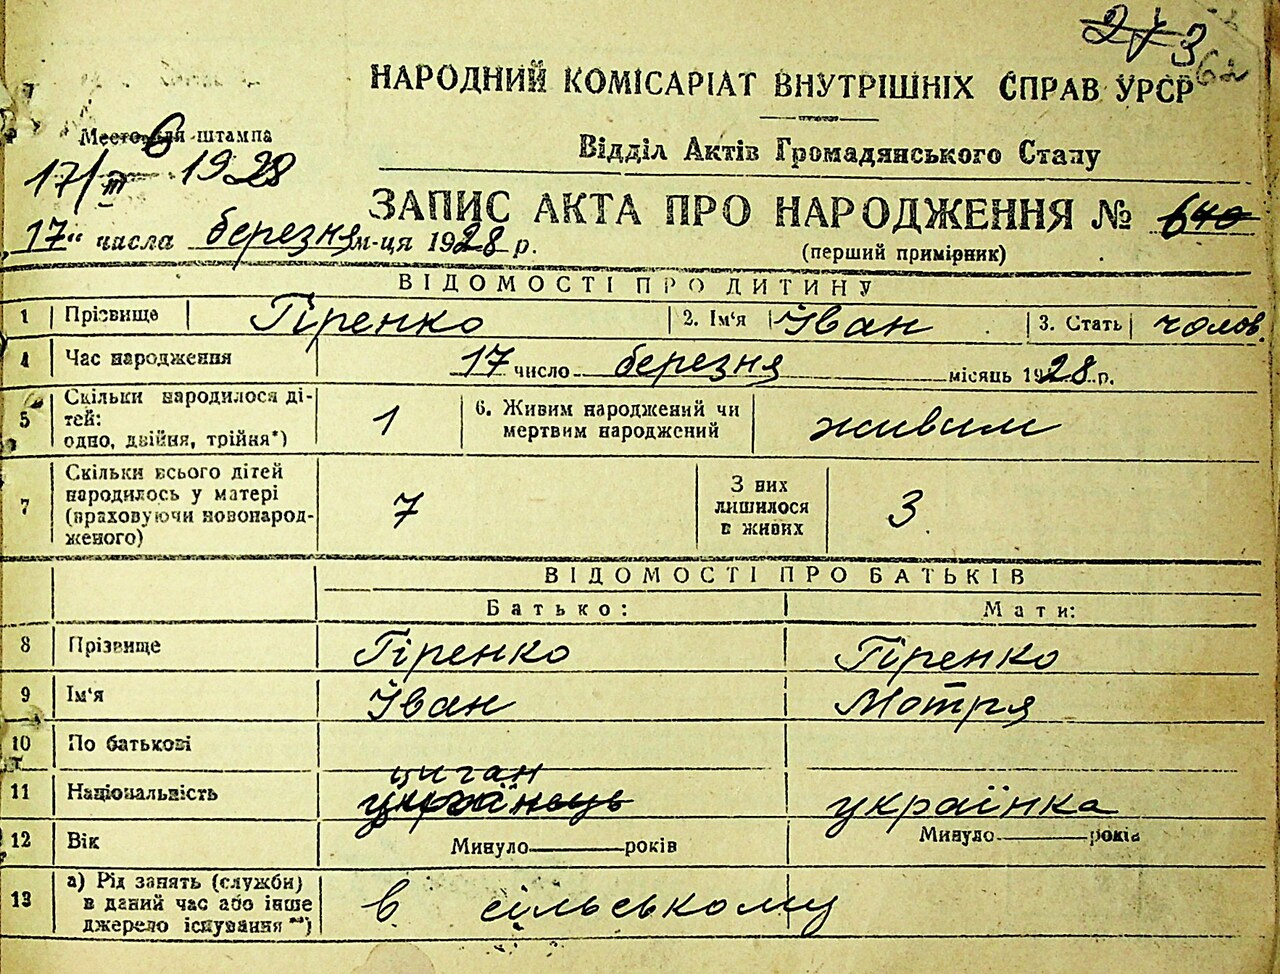 273
62
НАРОДНИЙ КОМІСАРІАТ ВНУТРІШНІХ СПРАВ УРСР
Место для штампа
6
Відділ Актів Громадянського Стану
17/III 1928
ЗАПИС АКТА ПРО НАРОДЖЕННЯ № 640
„17“ числа березня м-ця 1928 р.
(перший примірник)
ВІДОМОСТІ ПРО ДИТИНУ
1 Прізвище Гіренко 2. Ім'я Іван 3. Стать чолов.
4 Час народження 17 число березня місяць 1928 р.
5 Скільки народилося ді-
тей:
одно, двійня, трійня*) 1 6. Живим народжений чи
мертвим народжений живим
7 Скільки всього дітей
народилось у матері
(враховуючи новонарод-
женого) 7 З них
лишилося
в живих 3
ВІДОМОСТІ ПРО БАТЬКІВ
Батько: Мати:
8 Прізвище Гіренко Гіренко
9 Ім'я Іван Мотря
10 По батькові
циган
11 Національність українець українка
12 Вік Минуло років Минуло років
13 а) Рід занять (служби)
в даний час або інше
джерело існування **) в сільському